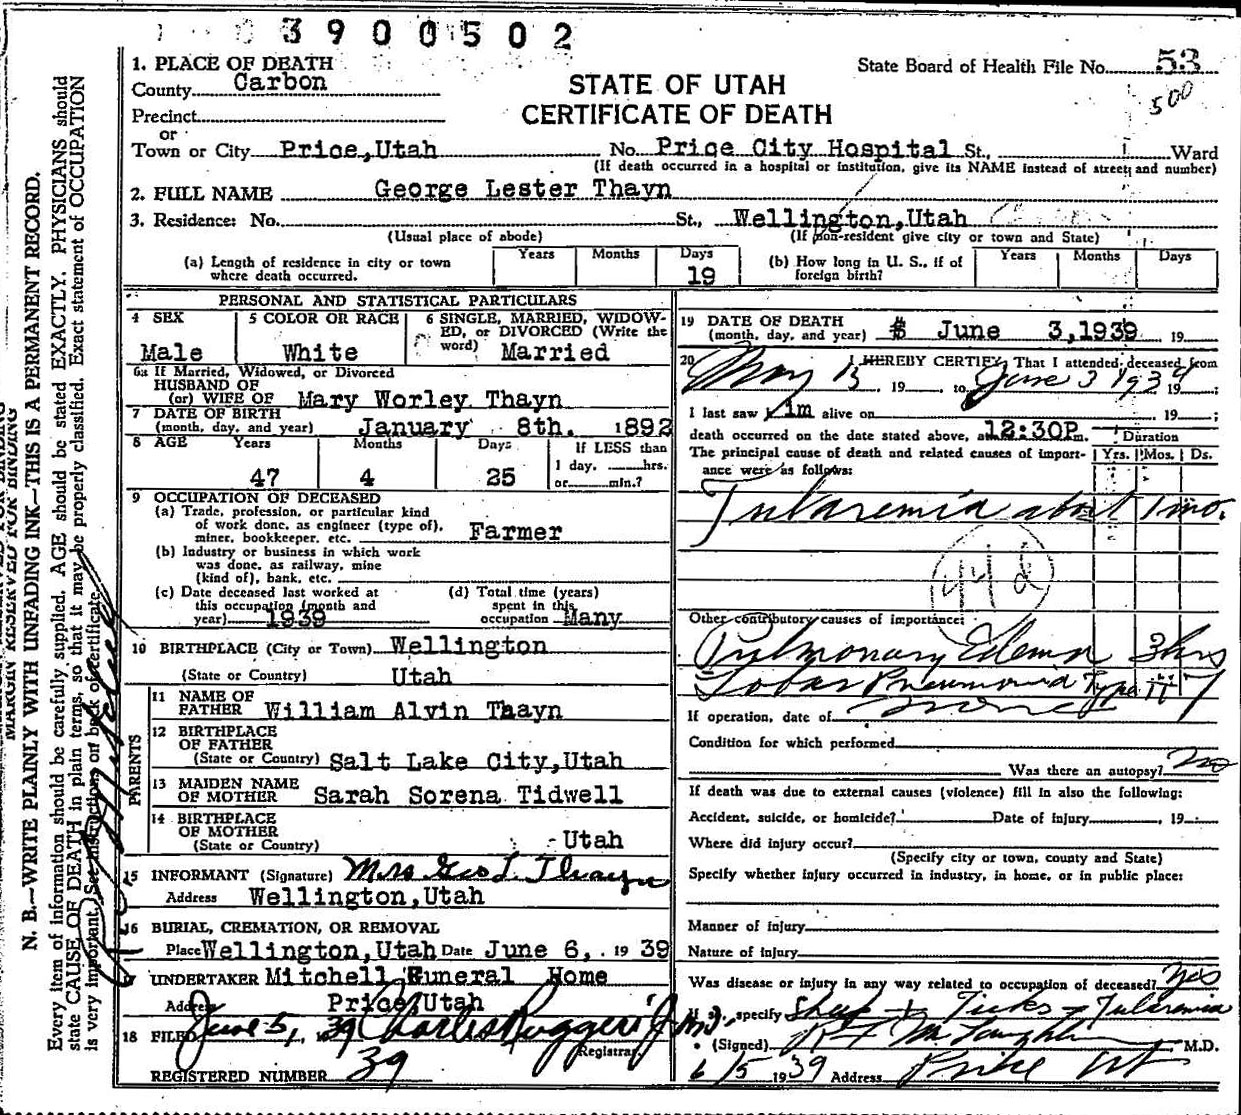 3900502
1. PLACE OF DEATH
County Carbon
Precinct
or
Town or City Price,Utah No. Price City Hospital St., Ward
(If death occurred in a hospital or institution, give its NAME instead of street and number)
STATE OF UTAH
CERTIFICATE OF DEATH
State Board of Health File No. 53
500
2. FULL NAME George Lester Thayn
3. Residence: No. St., Wellington,Utah
(Usual place of abode) (If non-resident give city or town and State)
(a) Length of residence in city or town where death occurred. Years Months Days 19
(b) How long in U. S., if of foreign birth? Years Months Days
PERSONAL AND STATISTICAL PARTICULARS
4 SEX Male
5 COLOR OR RACE White
6 SINGLE, MARRIED, WIDOW-
ED, or DIVORCED (Write the
word) Married
6a If Married, Widowed, or Divorced
HUSBAND OF
(or) WIFE OF Mary Worley Thayn
7 DATE OF BIRTH
(month, day, and year) January 8th. 1892
8 AGE Years 47 Months 4 Days 25
If LESS than
1 day, hrs.
or min.?
9 OCCUPATION OF DECEASED
(a) Trade, profession, or particular kind
of work done, as engineer (type of),
miner, bookkeeper, etc. Farmer
(b) Industry or business in which work
was done, as railway, mine
(kind of), bank, etc.
(c) Date deceased last worked at
this occupation (month and
year) 1939
(d) Total time (years)
spent in this
occupation Many
10 BIRTHPLACE (City or Town) Wellington
(State or Country) Utah
PARENTS
11 NAME OF
FATHER William Alvin Thayn
12 BIRTHPLACE
OF FATHER
(State or Country) Salt Lake City,Utah
13 MAIDEN NAME
OF MOTHER Sarah Sorena Tidwell
14 BIRTHPLACE
OF MOTHER
(State or Country) Utah
15 INFORMANT (Signature) Mrs Geo L. Thayn
Address Wellington,Utah
16 BURIAL, CREMATION, OR REMOVAL
Place Wellington,Utah Date June 6, 1939
17 UNDERTAKER Mitchell Funeral Home
Address Price Utah
18 FILED June 5, 1939 Charles Ruggeri Jr M.D.
Registrar.
REGISTERED NUMBER 39
19 DATE OF DEATH
(month, day, and year) June 3,1939 19
20 I HEREBY CERTIFY, That I attended deceased from
May 13, 19 to June 3 1939 19 ;
I last saw him alive on 19 ;
death occurred on the date stated above, at 12:30P m.
The principal cause of death and related causes of import-
ance were as follows:
Duration
Yrs. Mos. Ds.
Tularemia about 1 mo.
44d
Other contributory causes of importance:
Pulmonary Edema 3 hrs
Lobar Pneumonia Type II 7
If operation, date of none
Condition for which performed
Was there an autopsy? no
If death was due to external causes (violence) fill in also the following:
Accident, suicide, or homicide? Date of injury , 19
Where did injury occur?
(Specify city or town, county and State)
Specify whether injury occurred in industry, in home, or in public place:
Manner of injury
Nature of injury
Was disease or injury in any way related to occupation of deceased? yes
If so, specify Sheep Ticks - Tularemia
(Signed) McLaughlin M.D.
6/5 1939 Address Price Ut
N. B.—WRITE PLAINLY WITH UNFADING INK—THIS IS A PERMANENT RECORD.
Every item of information should be carefully supplied. AGE should be stated EXACTLY. PHYSICIANS should
state CAUSE OF DEATH in plain terms, so that it may be properly classified. Exact statement of OCCUPATION
is very important. See instructions on back of certificate.
MARGIN RESERVED FOR BINDING